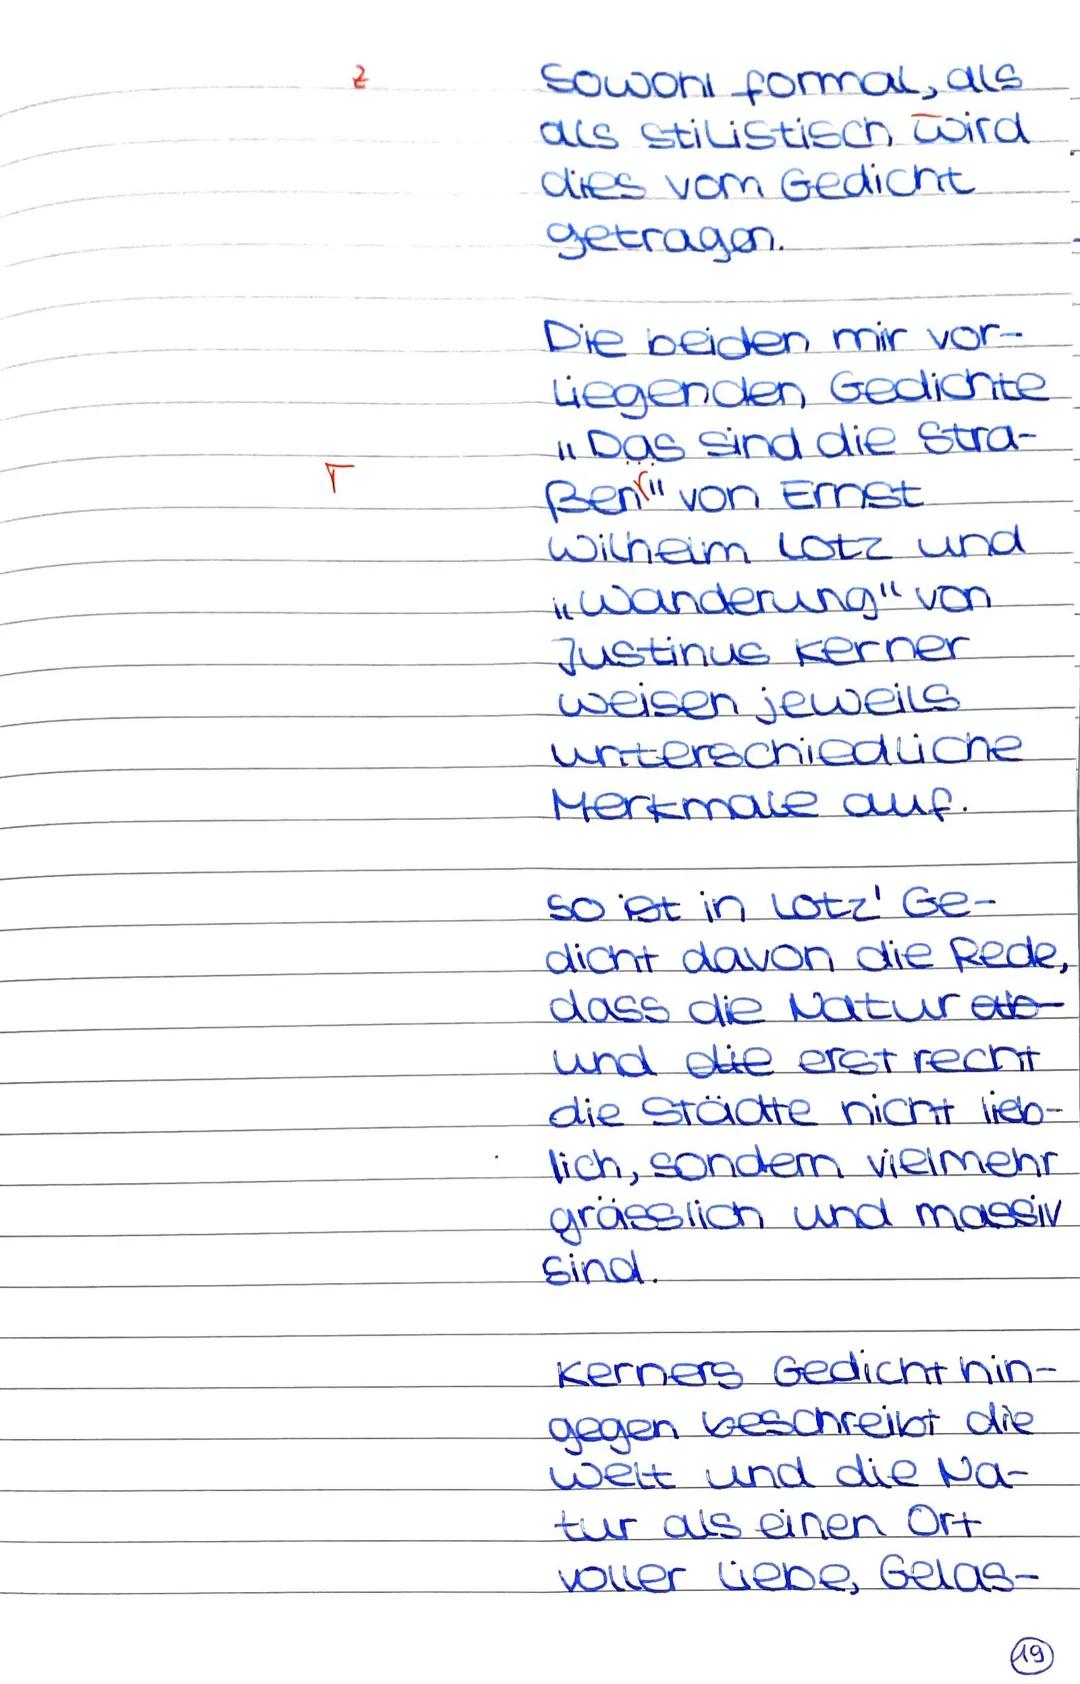 z
Sowohl formal, als
als stilistisch wird
dies vom Gedicht
getragen.
Die beiden mir vor-
liegenden Gedichte
„Das sind die Stra-
r
ßen" von Ernst
Wilhelm Lotz und
„Wanderung" von
Justinus Kerner
weisen jeweils
unterschiedliche
Merkmale auf.
So ist in Lotz' Ge-
dicht davon die Rede,
dass die Natur
und die erst recht
die Städte nicht lieb-
lich, sondern vielmehr
grässlich und massiv
sind.
Kerners Gedicht hin-
gegen beschreibt die
Welt und die Na-
tur als einen Ort
voller Liebe, Gelas-
19